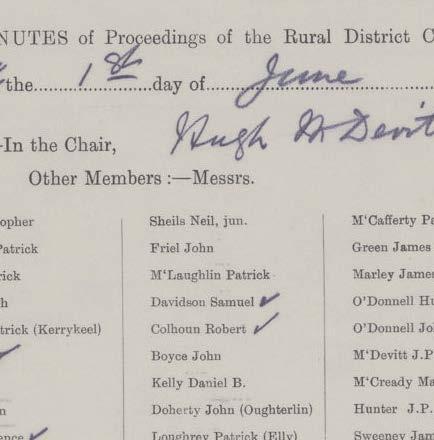 NUTES of Proceedings of the Rural District C
the 1st day of June
-In the Chair, Hugh McDevit
Other Members :—Messrs.
opher
Patrick
rick
h
trick (Kerrykeel)
n
ence ✓
Sheils Neil, jun.
Friel John
M‘Laughlin Patrick
Davidson Samuel ✓
Colhoun Robert ✓
Boyce John
Kelly Daniel B.
Doherty John (Oughterlin)
Loughrey Patrick (Elly)
M‘Cafferty Pa
Green James
Marley James
O’Donnell Hu
O’Donnell Jo
M‘Devitt J.P
M‘Cready Ma
Hunter J.P.
Sweeney Jam